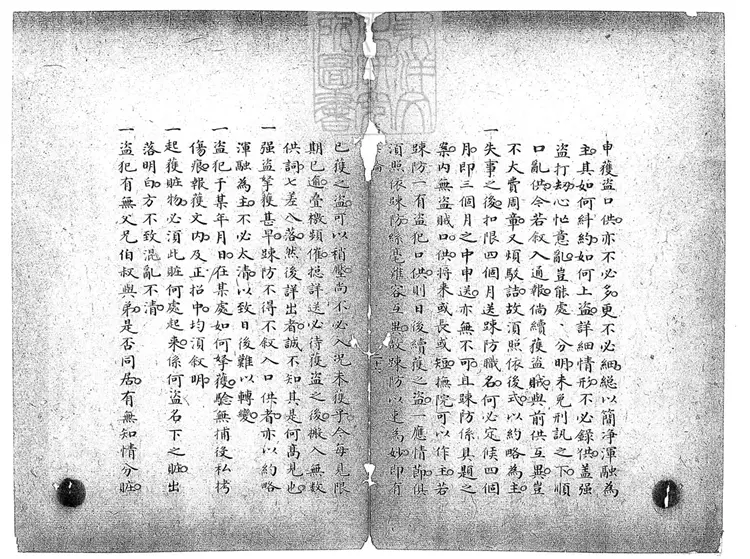 申獲盜口供亦不必多更不必細總以簡淨渾融為
主其如何糾約如何上盜詳細情形不必錄供蓋强
盜打劫心忙意亂豈能處、分明未免刑訊之下順
口亂供今若叙入通報倘續獲盜賊與前供互異豈
不大費周章又煩駁詰故須照依後式以約略為主
一失事之後扣限四個月送踈防職名何必定候四個
月即三個月之中申送亦無不可且踈防係具題之
案內無盜賊口供將来或長或短撫院可以作主若
踈防一有盜犯口供則日後續獲之盜一應情節俱
須照依踈防絲毫難容互異故踈防以更為妙即有
已獲之盜可以稍壓尚不必入況未獲乎今每見限
期已逾叠檄頻催挺詳送必待獲盜之後撤入無数
供詞七差八落然後詳出者誠不知其是何高見也
一强盜拏獲甚早踈防不得不叙入口供者亦以約略
渾融為主不必太清以致日後難以轉變
一盜犯于某年月日在某處如何拏獲驗無捕役私拷
傷痕報獲文內及正招中均須叙明
一起獲賍物必須此賍何處起来係何盜名下之賍出
落明白方不致混亂不清
一盜犯有無父兄伯叔與弟是否同居有無知情分賍